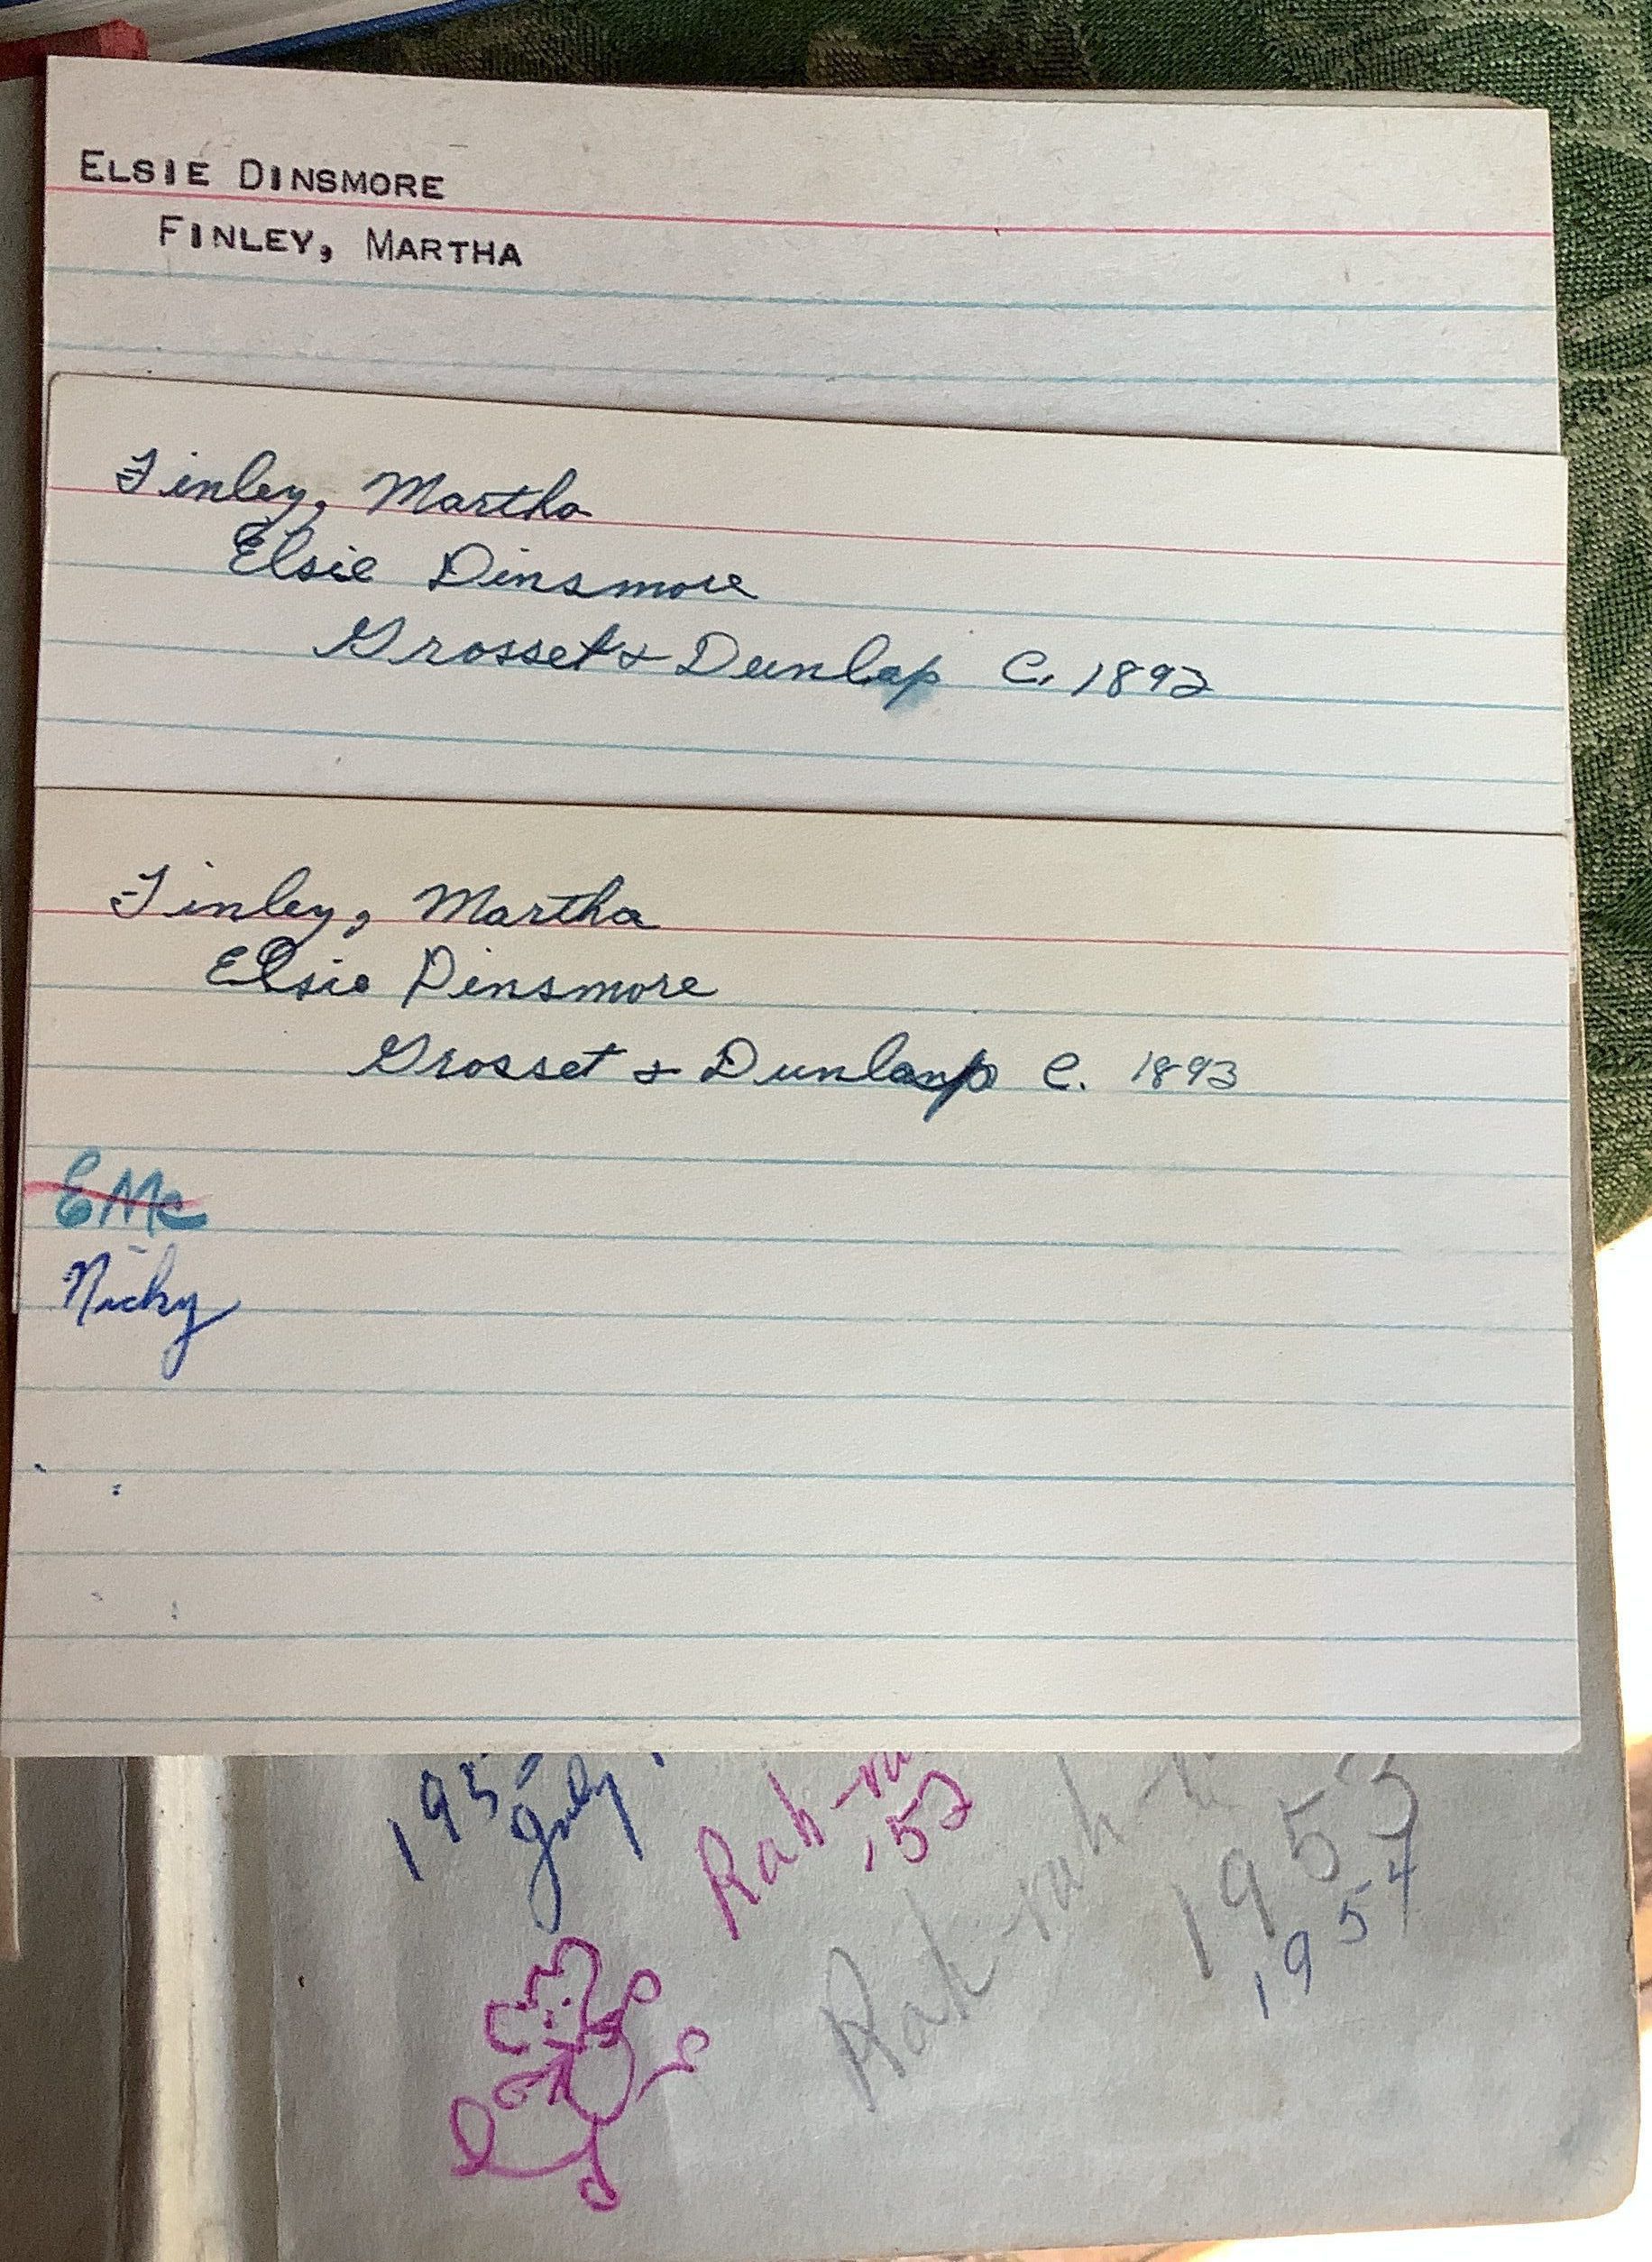 ELSIE DINSMORE
FINLEY, MARTHA
Finley, Martha
Elsie Dinsmore
Grosset & Dunlap C. 1892
Finley, Martha
Elsie Dinsmore
Grosset & Dunlap C. 1893
EMc
Nicky
195
July
Rah-ra
'52
Rah-rah-
1953
1954